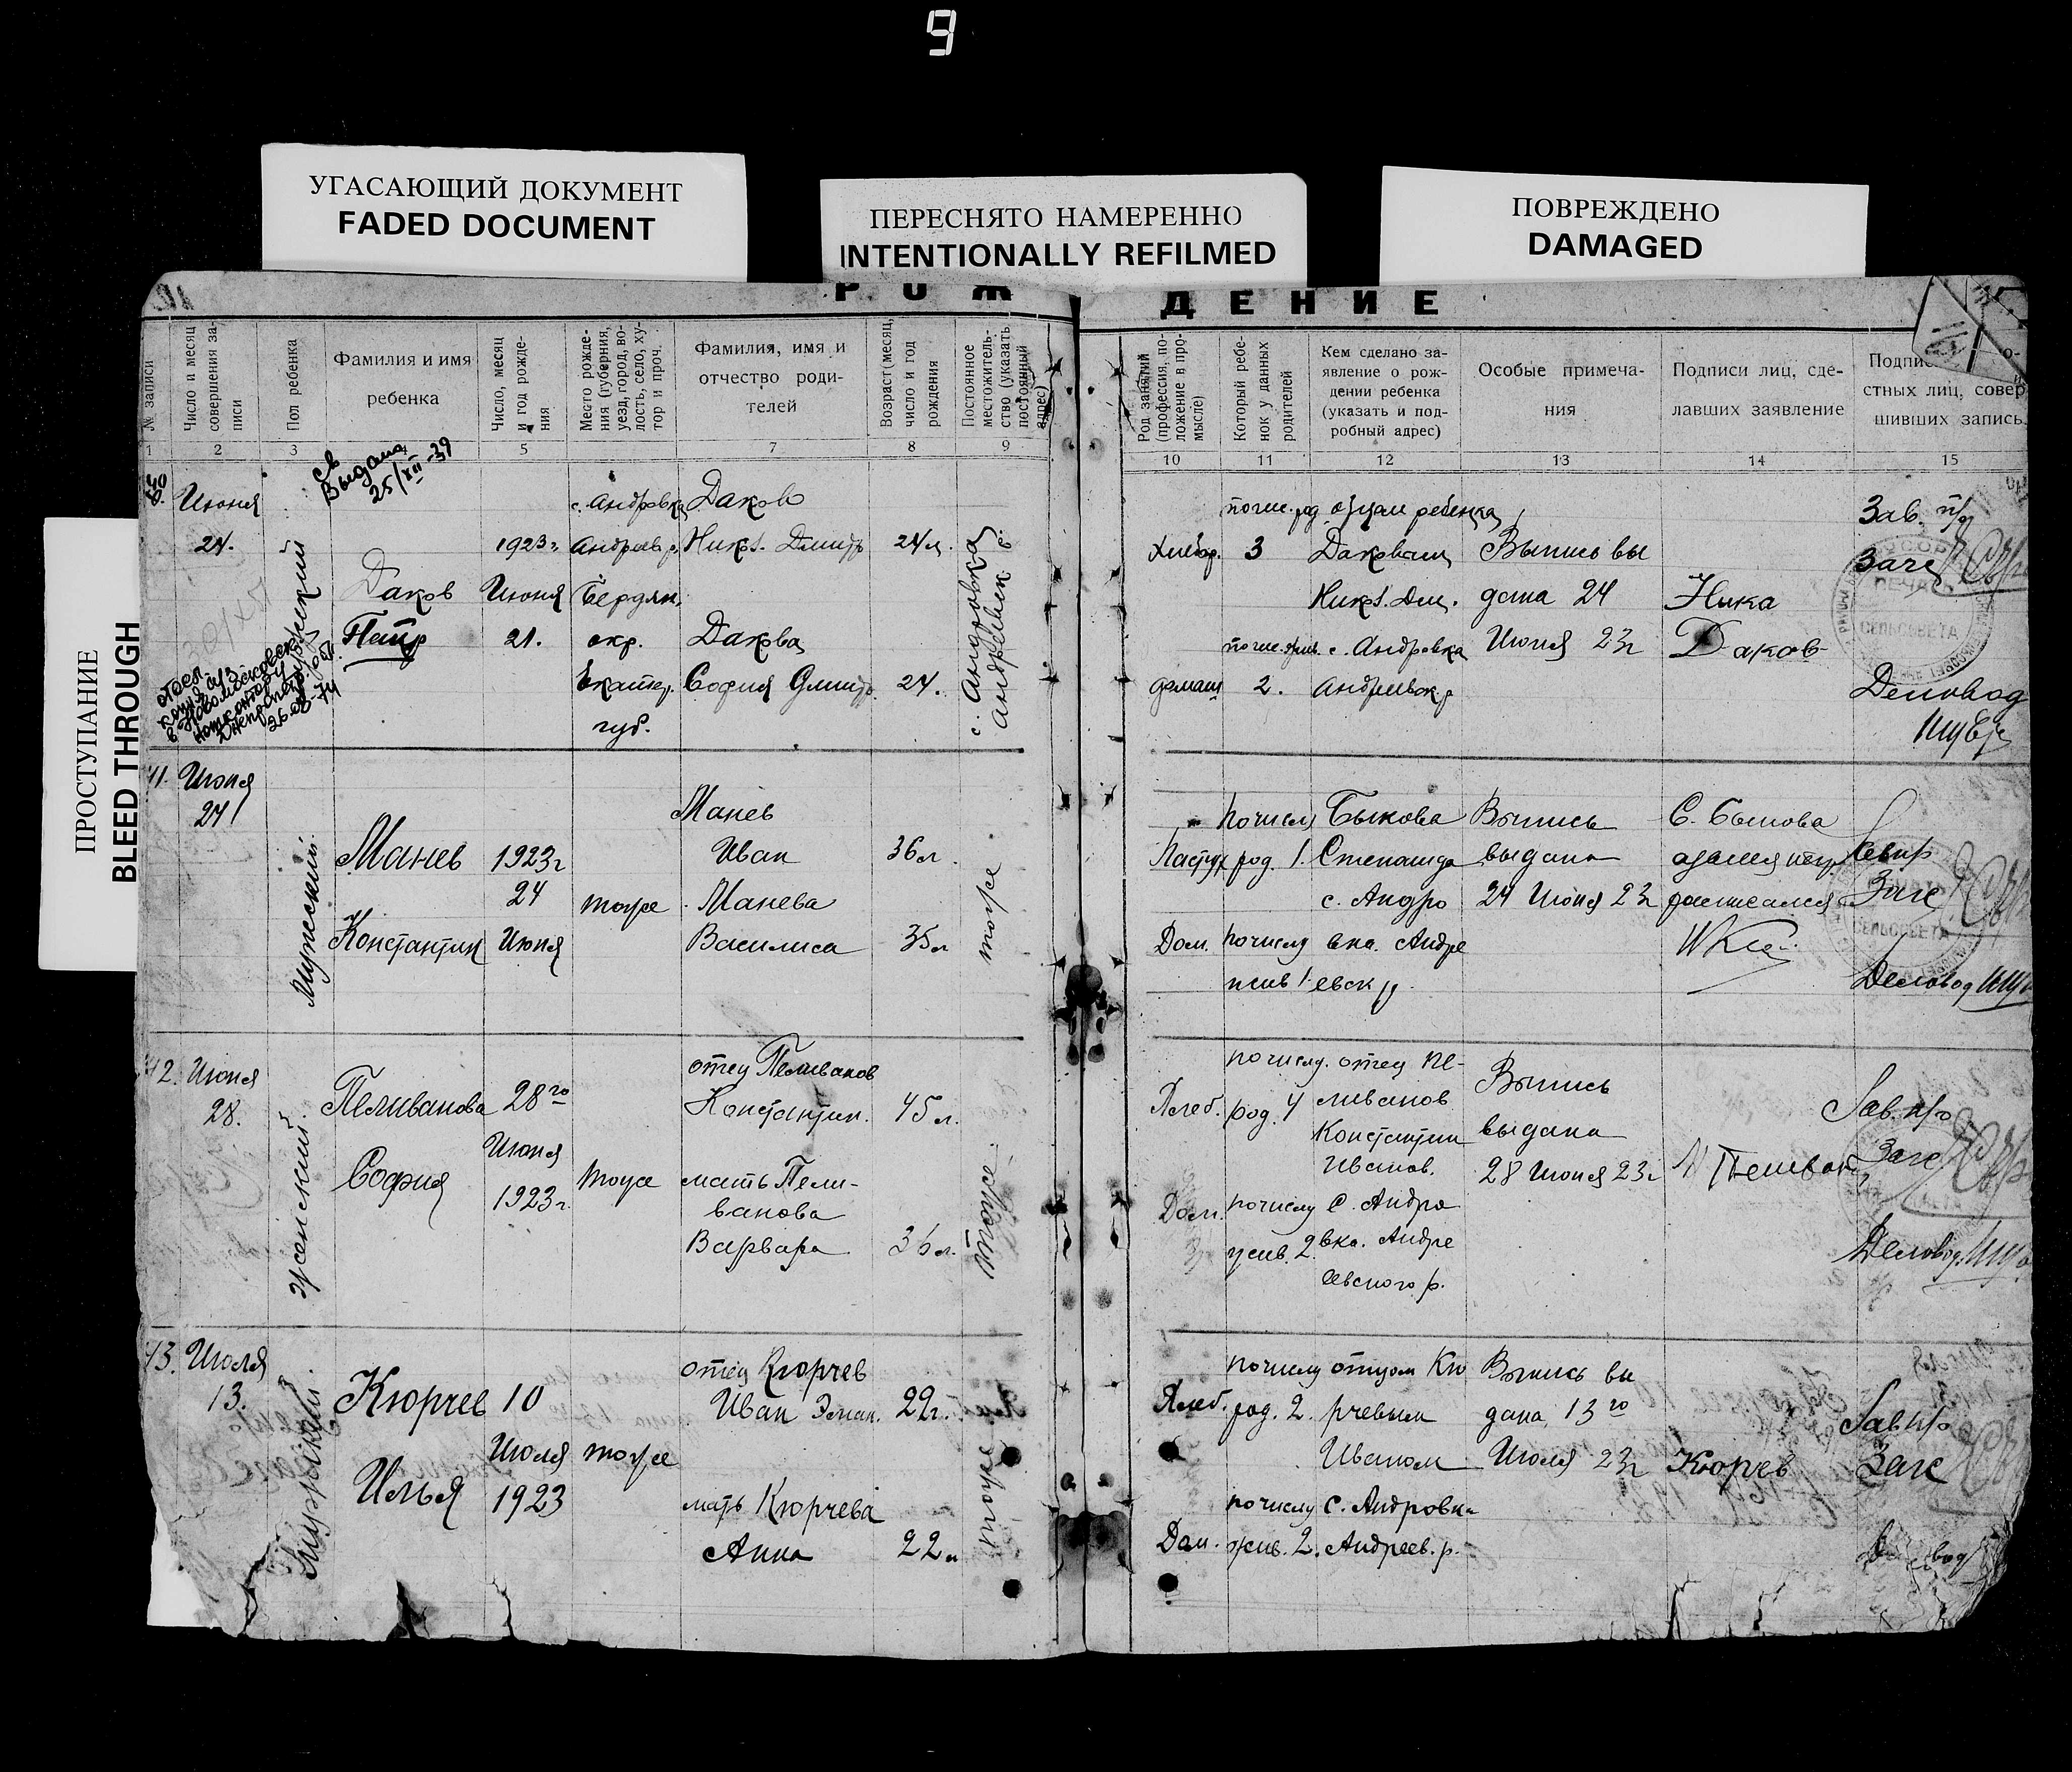 9
УГАСАЮЩИЙ ДОКУМЕНТ
FADED DOCUMENT
ПЕРЕСНЯТО НАМЕРЕННО
INTENTIONALLY REFILMED
ПОВРЕЖДЕНО
DAMAGED
ПРОСТУПАНИЕ
BLEED THROUGH
РОЖДЕНИЕ
№ записи
Число и месяц
совершения за-
писи
Пол ребенка
Фамилия и имя
ребенка
Число, месяц
и год рожде-
ния
Место рожде-
ния (губерния,
уезд, город, во-
лость, село, ху-
тор и проч.
Фамилия, имя и
отчество роди-
телей
Возраст (месяц,
число и год
рождения
Постоянное
местожитель-
ство (указать
постоянный
адрес)
Род занятий
(профессия, по-
ложение в про-
мысле)
Который ребе-
нок у данных
родителей
Кем сделано за-
явление о рож-
дении ребенка
(указать и под-
робный адрес)
Особые примеча-
ния
Подписи лиц, сде-
лавших заявление
стных лиц, совер
шивших запись
1 2 3 5 7 8 9 10 11 12 13 14 15
св
Выдана
25/XII-39
Июня
24.
мужской
Даков
Петр
1923г.
Июня
21.
с. Андровка
Андреев р.
Бердян.
окр.
Екатер.
губ.
Даков
Никол. Дмитр
Дакова
София Дмитр.
24л.
24.
с. Андровка
3
2.
отцом ребенка
Даковым
с. Андровка
Выпись вы
дана 24
Июня 23г
Ника
Даков
Зав. п/о
Загс
Деловод
41. Июня
24
Мужеский
Манев
Константин
1923г
24
Июня
тоже
Манев
Иван
Манева
Василиса
36л.
35л
тоже
Пастух
Дом.
по числу
род. 1.
по числу
жив 1
Быкова
Степанида
с. Андро
вка. Андре
евск р.
Выпись
выдана
24 Июня 23г
С. Быкова
расписался
Загс
Деловод
42. Июня
28.
женский.
Пеливанова
София
28го
Июня
1923г.
тоже
отец Пеливанов
Константин.
мать Пели-
ванова
Варвара
45л.
36л.
тоже
Хлеб.
Дом.
по числу.
род. 4
по числу
жив. 2.
отец Пе-
ливанов
Константин
Иванов.
с. Андро
вка. Андре
евского р.
Выпись
выдана
28 Июня 23г
Зав. п/о
Загс
Деловод
43. Июля
13.
Мужеский.
Кюрчев
Илья
10
Июля
1923
тоже
отец Кюрчев
Иван Эман.
мать Кюрчева
Анна
22г.
22л
тоже
Хлеб.
Дом.
по числу
род. 2.
по числу
жив. 2.
отцом Кю
рчевым
Иваном
с. Андровка
Андреев. р.
Выпись вы
дана 13го
Июля 23г
Кюрчев
Зав п/о
Загс